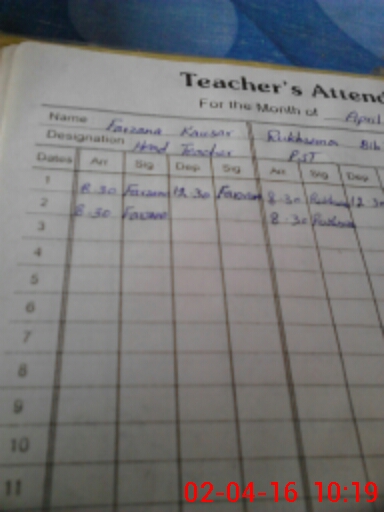 Teacher's Attend
For the Month of April
Name Farzana Kausar Rukhsana Bib
Designation Head Teacher PST
Dates Arr. Sig. Dep. Sig. Arr. Sig. Dep.
1 8.30 Farzana 12.30 Farzana 8.30 Rukhsana 12.30
2 8.30 Farzana 8.30 Rukhsana
3
4
5
6
7
8
9
10
11
02-04-16 10:19